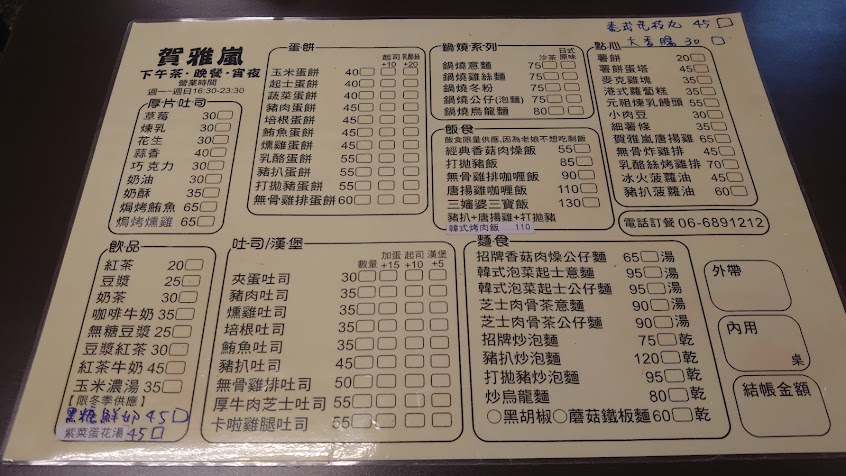 賀雅嵐
下午茶・晚餐・宵夜
營業時間
週一~週日16:30-23:30
厚片吐司
草莓 30
煉乳 30
花生 30
蒜香 40
巧克力 30
奶油 30
奶酥 35
焗烤鮪魚 65
焗烤燻雞 65
蛋餅
起司 +10
乳酪絲 +20
玉米蛋餅 40
起士蛋餅 40
蔬菜蛋餅 40
豬肉蛋餅 40
培根蛋餅 40
鮪魚蛋餅 40
燻雞蛋餅 40
乳酪蛋餅 55
豬扒蛋餅 55
打拋豬蛋餅 55
無骨雞排蛋餅 60
鍋燒系列
沙茶 日式原味
鍋燒意麵 75
鍋燒雞絲麵 75
鍋燒冬粉 75
鍋燒公仔(泡麵) 75
鍋燒烏龍麵 80
飯食
飯食限量供應,因為老娘不想吃剩飯
經典香菇肉燥飯 55
打拋豬飯 85
無骨雞排咖喱飯 90
唐揚雞咖喱飯 110
三嬸婆三寶飯 130
豬扒+唐揚雞+打拋豬
韓式烤肉飯 110
45
大香腸 30
點心
薯餅 20
薯餅蛋塔 45
麥克雞塊 35
港式蘿蔔糕 35
元祖煉乳饅頭 55
小肉豆 30
細薯條 35
賀雅嵐唐揚雞 65
無骨炸雞排 45
乳酪絲烤雞排 70
冰火菠蘿油 45
豬扒菠蘿油 60
電話訂餐 06-6891212
飲品
紅茶 20
豆漿 25
奶茶 30
咖啡牛奶 35
無糖豆漿 25
豆漿紅茶 30
紅茶牛奶 45
玉米濃湯 35
【限冬季供應】
黑糖鮮奶 45
紫菜蛋花湯 45
吐司/漢堡
數量 加蛋+15 起司+10 漢堡+5
夾蛋吐司 30
豬肉吐司 35
燻雞吐司 35
培根吐司 35
鮪魚吐司 35
豬扒吐司 45
無骨雞排吐司 50
厚牛肉芝士吐司 55
卡啦雞腿吐司 55
麵食
招牌香菇肉燥公仔麵 65 湯
韓式泡菜起士意麵 95 湯
韓式泡菜起士公仔麵 95 湯
芝士肉骨茶意麵 90 湯
芝士肉骨茶公仔麵 90 湯
招牌炒泡麵 75 乾
豬扒炒泡麵 120 乾
打拋豬炒泡麵 95 乾
炒烏龍麵 80 乾
○黑胡椒○蘑菇鐵板麵 60 乾
外帶
內用
桌
結帳金額